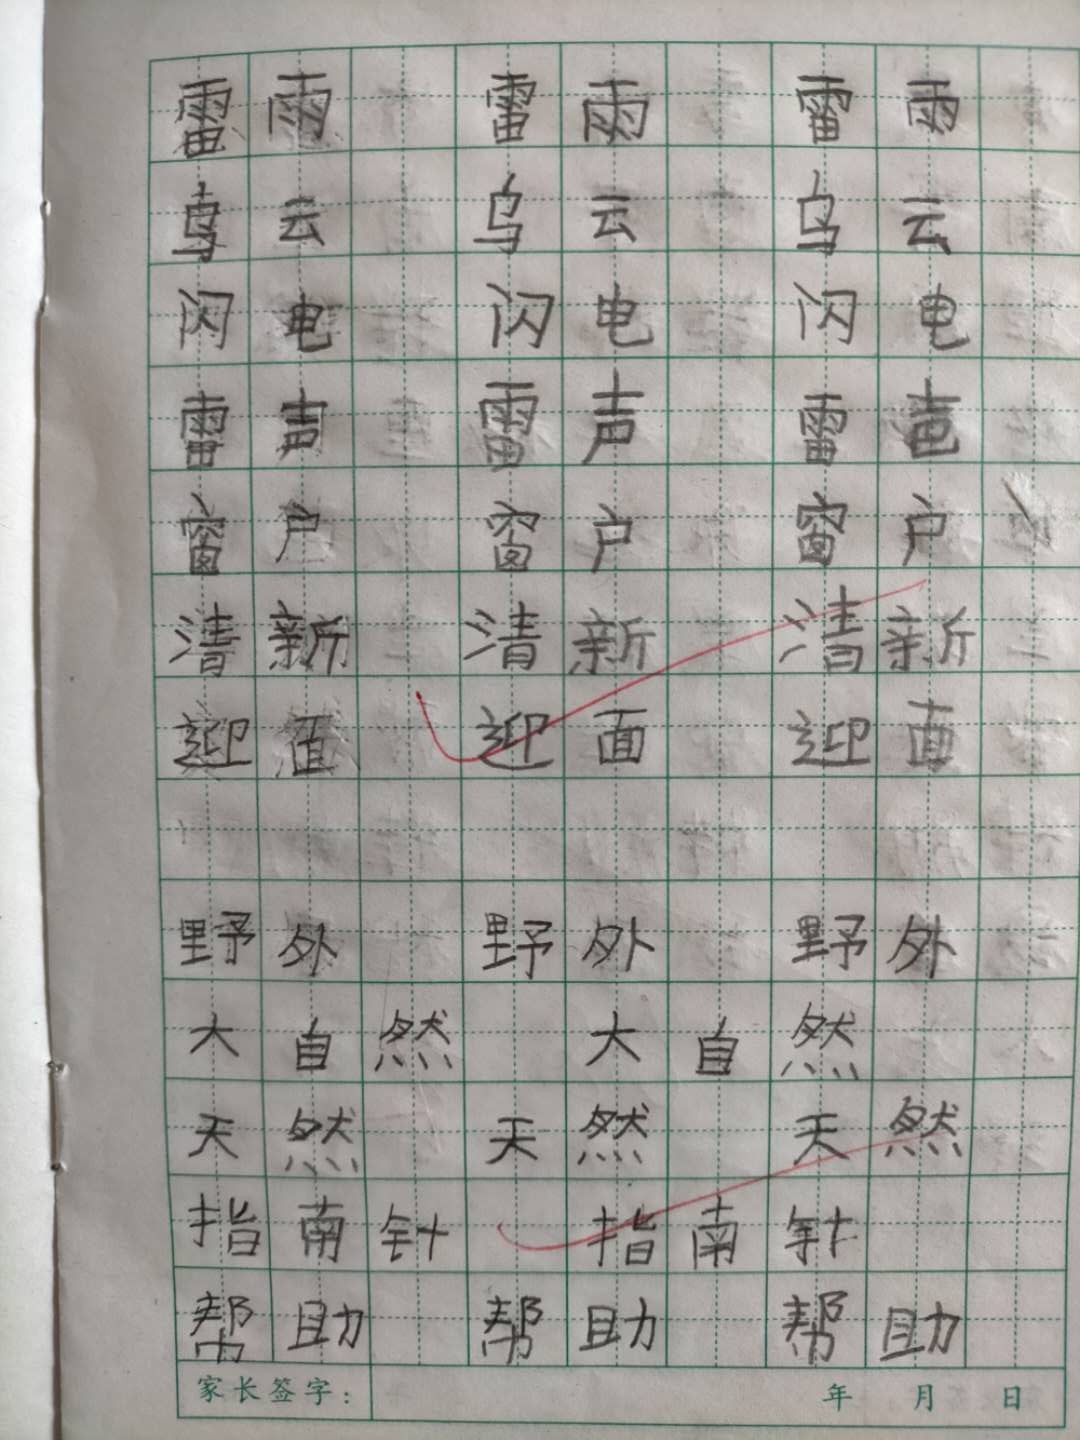 雷雨 雷雨 雷雨
乌云 乌云 乌云
闪电 闪电 闪电
雷声 雷声 雷声
窗户 窗户 窗户
清新 清新 清新
迎面 迎面 迎面
野外 野外 野外
大自然 大自然
天然 天然 天然
指南针 指南针
帮助 帮助 帮助
家长签字： 年 月 日